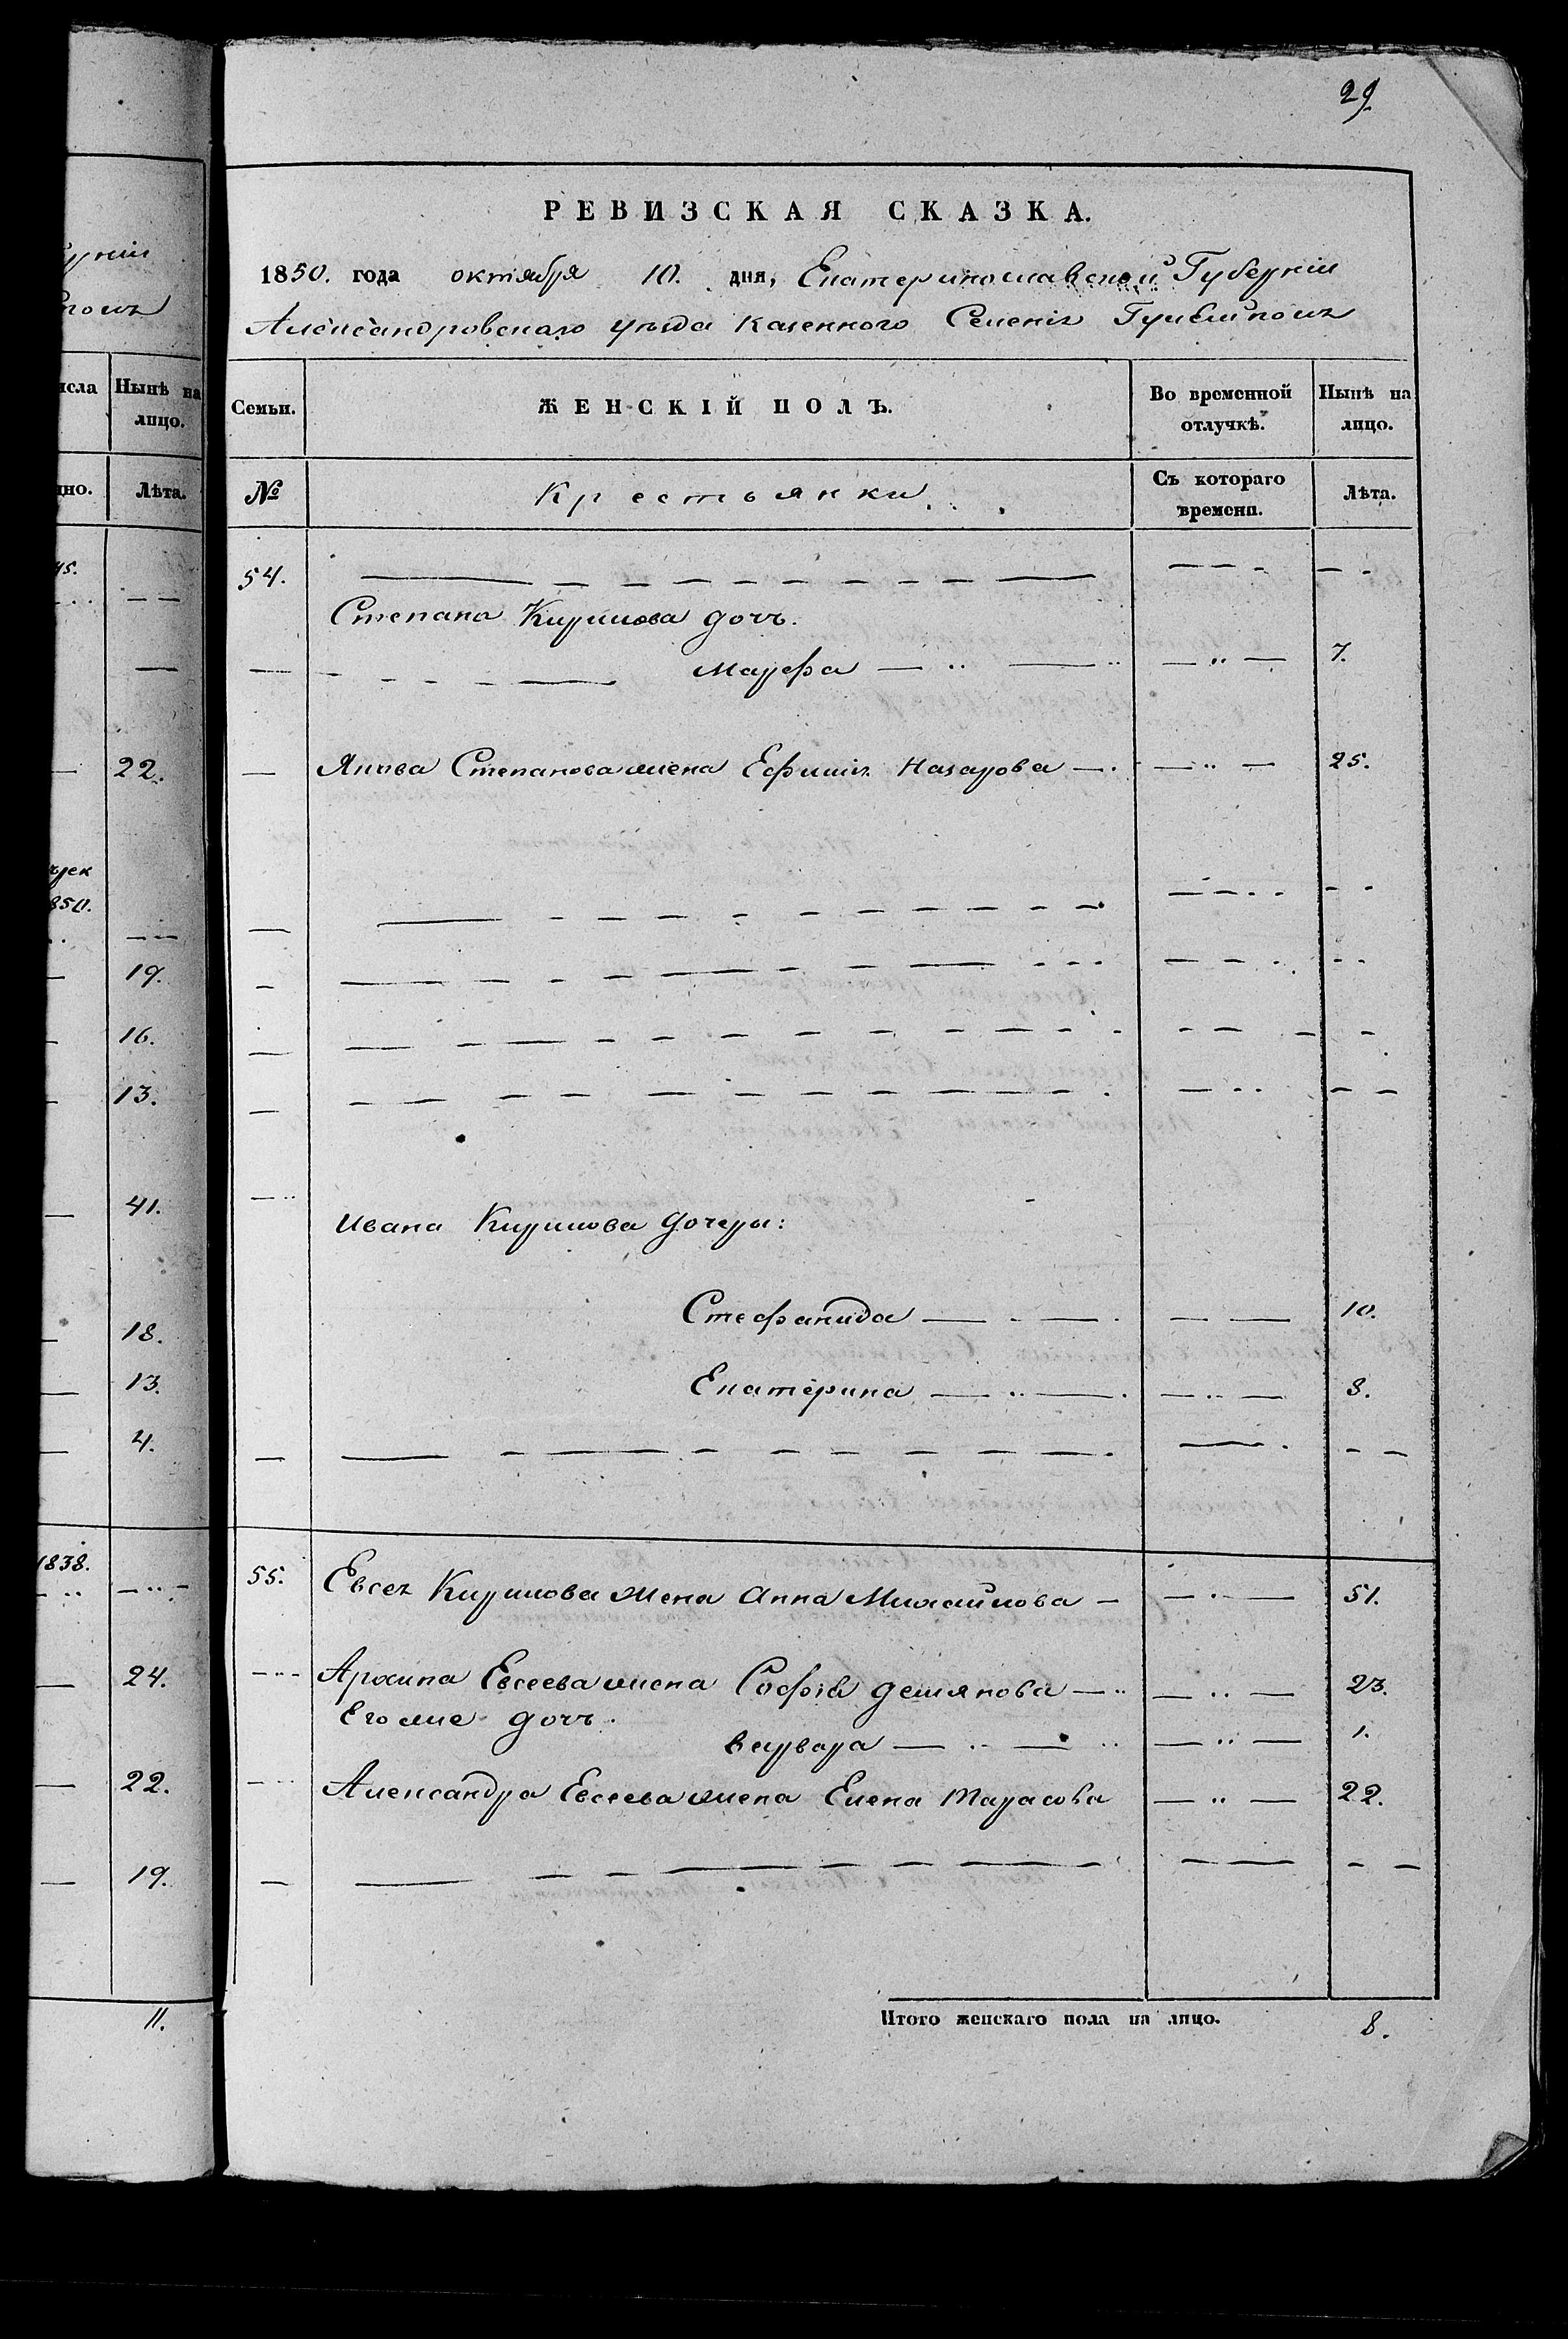 гуніи
помъ
исла Нынѣ на
лицо.
дно. Лѣта.
45.
22.
850.
19.
16.
13.
41.
18.
13.
4.
1838.
24.
22.
19.
11.
29.
РЕВИЗСКАЯ СКАЗКА.
1850. года октября 10. дня, Екатеринославской Губерніи
Александровского уѣзда казенного Селенія
Семьи. ЖЕНСКІЙ ПОЛЪ. Во временной Нынѣ на
отлучкѣ. лицо.
№ Крестьянки. Съ котораго Лѣта.
времени.
54. — — — — — — — — — —
Степана Кирилова дочь.
Марфа — „ — — „ — 7.
— Якова Степанова жена Ефимія Назарова — — „ — 25.
— — — — — — — — — —
— — — — — — — — — —
— — — — — — — — — —
— — — — — — — — — —
Ивана Кирилова дочери:
Стефанида — — — — 10.
Екатерина — „ — — „ — 8.
— — — — — — — — — —
55. Евсея Кирилова жена Анна Михайлова — — „ — 51.
— „ — Архипа Евсеева жена Софія Демянова — „ — „ — 23.
Его же дочь.
варвара — „ — — „ — 1.
— „ Александра Евсеева жена Елена Тарасова — „ — 22.
— — — — — — — — — —
Итого женскаго пола на лицо. 8.